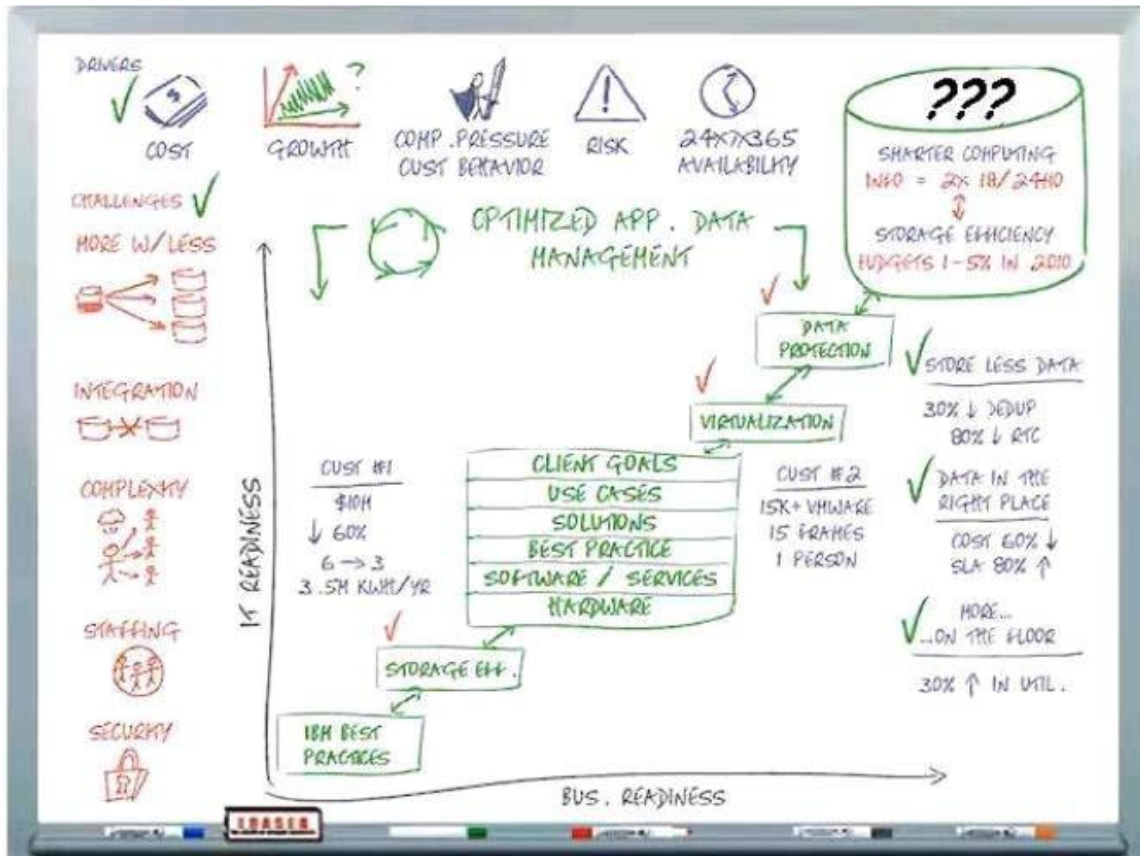 DRIVERS
$
COST
?
GROWTH
COMP. PRESSURE
CUST BEHAVIOR
!
RISK
24X7X365
AVAILABILITY
???
SMARTER COMPUTING
INFO = 2X 18/24MO
STORAGE EFFICIENCY
BUDGETS 1-5% IN 2010
CHALLENGES
MORE W/LESS
INTEGRATION
COMPLEXITY
STAFFING
SECURITY
OPTIMIZED APP. DATA
MANAGEMENT
IT READINESS
BUS. READINESS
DATA
PROTECTION
VIRTUALIZATION
CLIENT GOALS
USE CASES
SOLUTIONS
BEST PRACTICE
SOFTWARE / SERVICES
HARDWARE
STORAGE EFF.
IBM BEST
PRACTICES
CUST #1
$10M
↓ 60%
6 → 3
3.5M KWH/YR
CUST #2
15K+ VMWARE
15 FRAMES
1 PERSON
STORE LESS DATA
30% ↓ DEDUP
80% ↓ RTC
DATA IN THE
RIGHT PLACE
COST 60% ↓
SLA 80% ↑
MORE...
...ON THE FLOOR
30% ↑ IN UTIL.
ERASER